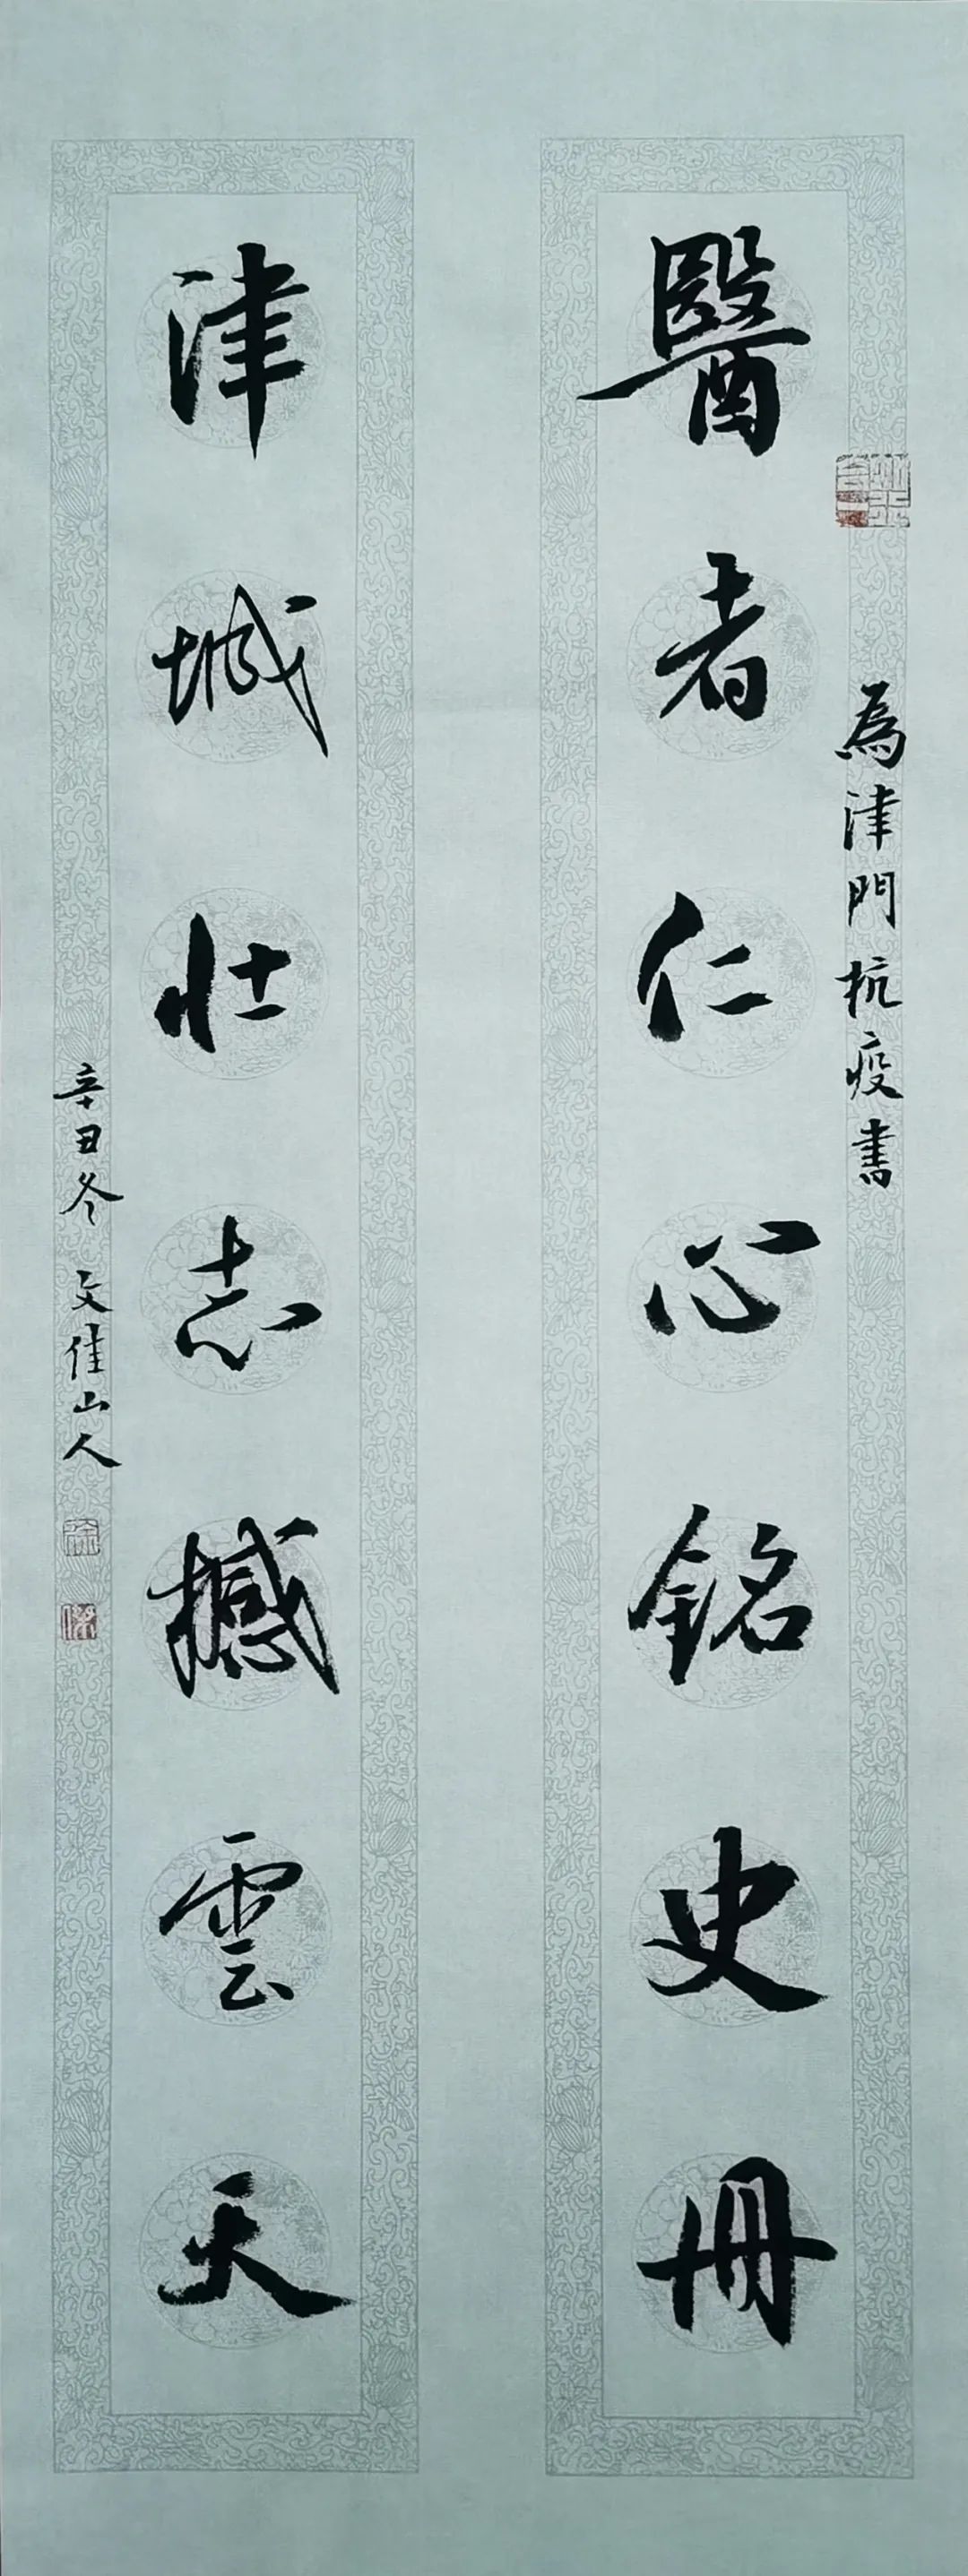 為津門抗疫書
醫者仁心銘史冊
津城壯志撼雲天
辛丑冬 文佳山人